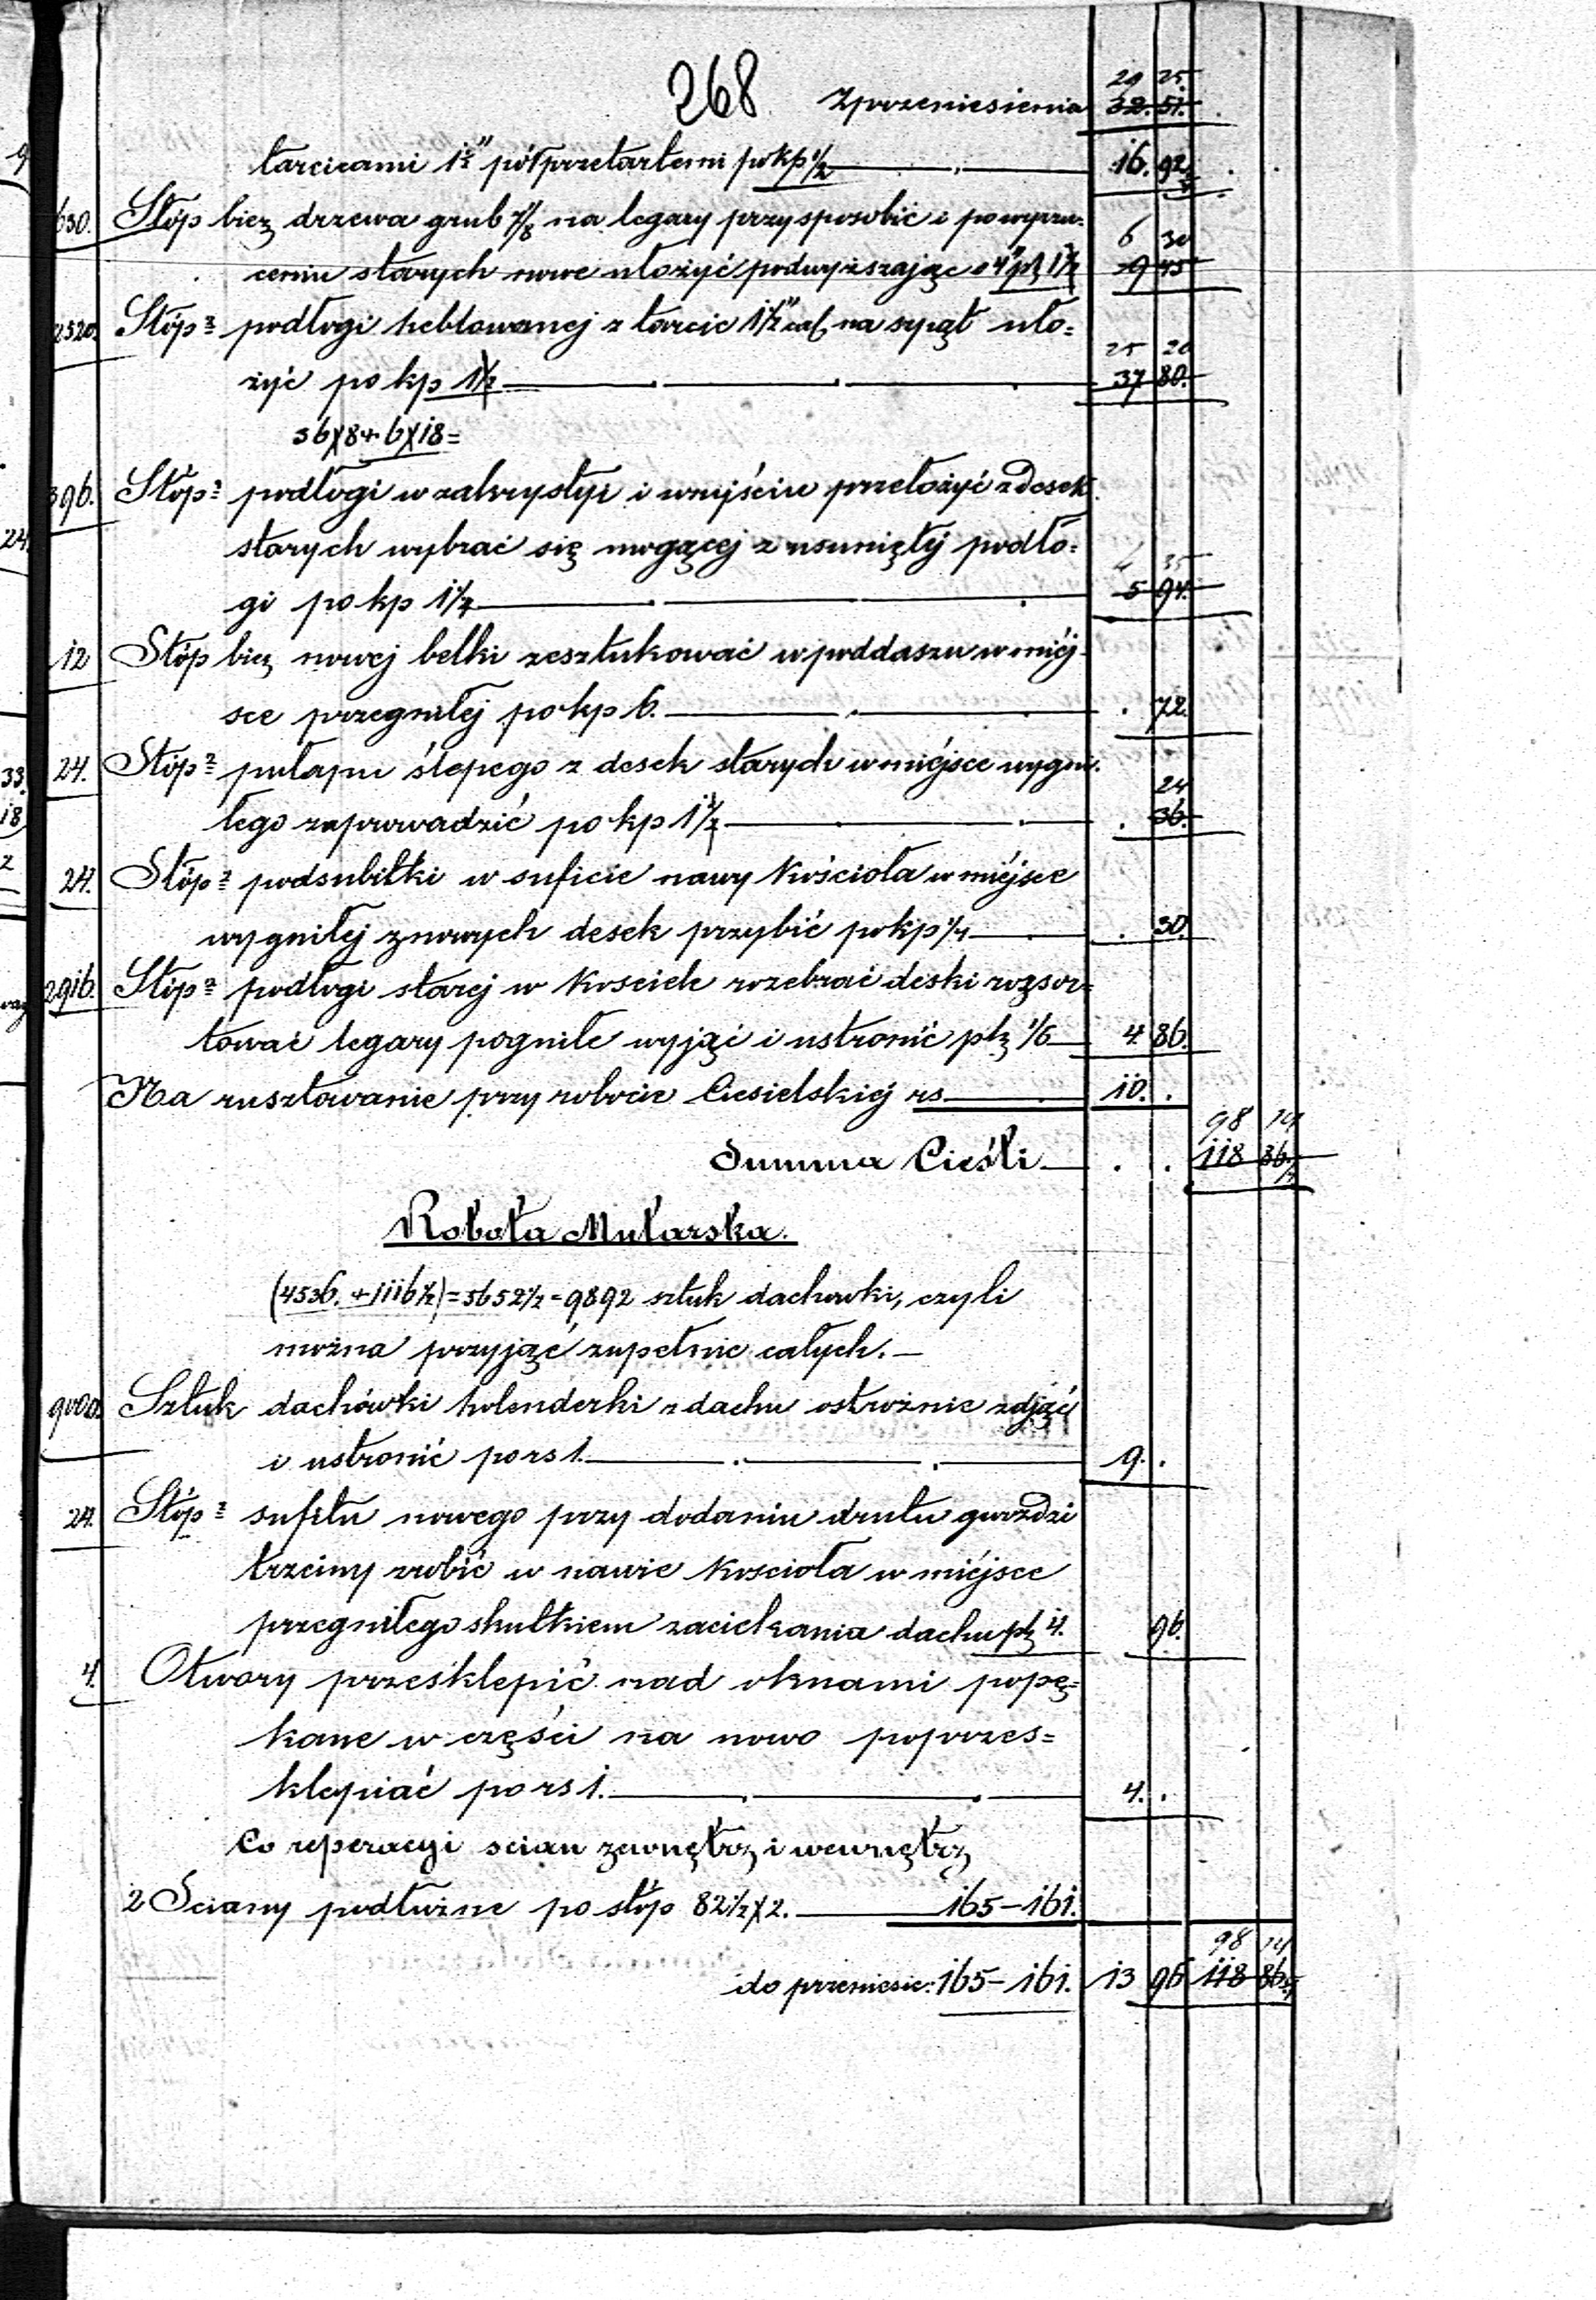 268
29 25
Z przeniesienia 32. 51.
tarcicami 1½" półprzetartemi po kp ½ 16. 92
630. Stóp bież drzewa grub 7/8 na legary przysposobić i po wyrzu-
6 30
ceniu starych nowe ułożyć podwyższając o 4" ph 1½ 9 45
2520. Stóp² podłogi heblowanej z tarcic 1½" cal na sypąt uło=
25 20
żyć po kp 1½ 37 80.
36X8+6X18=
396. Stóp² podłogi w zakrystyi i wnyjściu przełożyć z desek
starych wybrać się mogącej z usuniętéj podło=
gi po kp 1½ 5 94.
12 Stóp bież nowej belki zesztukować w poddaszu w miéj-
sce przegniłej po kp 6. . 72.
24. Stóp² pułapu ślepego z desek starych w miéjsce wygni-
24
łego zaprowadzić po kp 1½ . 36.
24. Stóp² podsubitki w suficie nawy Kościoła w miéjsce
wygniłej z nowych desek przybić po kp 1¼ . 30.
2916. Stóp² podłogi starej w Kosciele rozebrać deski rozsor=
tować legary pogniłe wyjąć i ustronić ph 1/6 4. 86.
Na rusztowanie przy robocie Ciesielskiej rs 10. .
98 14
Summa Cieśli . . 118 86
Robota Mularska.
(4536. + 1116½) = 5652½ = 9892 sztuk dachówki, czyli
można przyjąć zupełnie całych.—
9000. Sztuk dachówki holenderki z dachu ostrożnie zdjąć
i ustronić po rs 1. 9. .
24. Stóp² sufitu nowego przy dodaniu drutu gwoździ
trzciny zrobić w nawie Kosciola w miéjsce
przegniłego skutkiem zaciekania dachu ph 4. 96.
4. Otwory przesklepić nad oknami popę=
kane w części na nowo poprzes=
klepiać po rs 1. 4. .
Co reperacyi scian zewnętrz i wewnętrz
2 Sciany podłużne po stóp 82½X2. 165—161.
98 14
do przeniesie: 165—161. 13 96 118 86